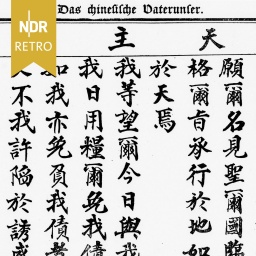 NDR
RETRO
Das chineſiſche Vaterunſer.
天主
願爾名見聖爾國臨
格爾旨承行於地如
於天焉
我等望爾今日與我
我日用糧爾免我債
如我亦免負我債者
不我許陷於誘感